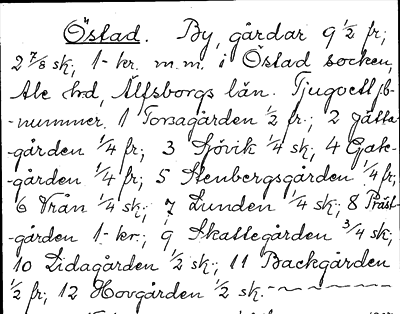 Östad. By, gårdar 9 1/2 fr;
2 7/8 sk, 1- kr. m.m. i Östad socken,
Ale hrd, Älfsborgs län. Tjugoett jb-
-nummer, 1 Torsagården 1/2 fr.; 2 Jätta-
gården 1/4 fr; 3 Sjövik 1/4 sk; 4 Gate-
-gården 1/4 fr; 5 Stenbergsgården 1/4 fr;
6 Vrån 1/4 sk; 7 Lunden 1/4 sk; 8 Präst-
-gården 1- kr.; 9 Skattegården 3/4 sk;
10 Lidagården 1/2 sk; 11 Backgården
1/2 fr; 12 Hovgården 1/2 sk.-